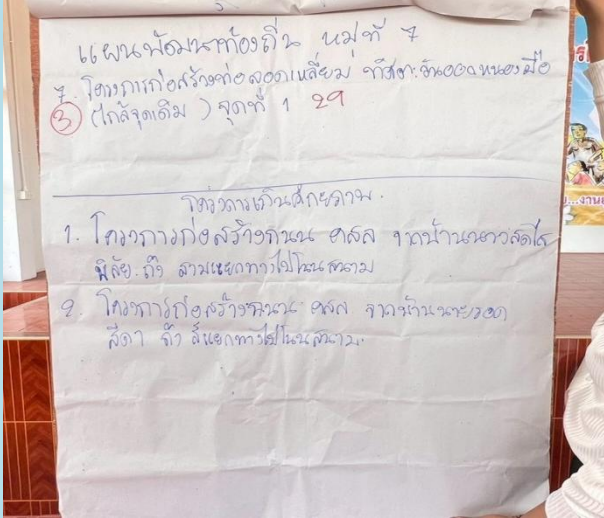 แผนพัฒนาท้องถิ่น หมู่ที่ 7
7. โครงการก่อสร้างท่อลอดเหลี่ยม ทิศตะวันออกหนองมือ
3 (ใกล้จุดเดิม) จุดที่ 1 29
โครงการเกินศักยภาพ.
1. โครงการก่อสร้างถนน คสล จากบ้านนาง
พิลัย ถึง สามแยกทางไปโนนสนาม
2. โครงการก่อสร้างถนน คสล จากบ้านนาย
สีดา ถึง สี่แยกทางไปโนนสนาม.